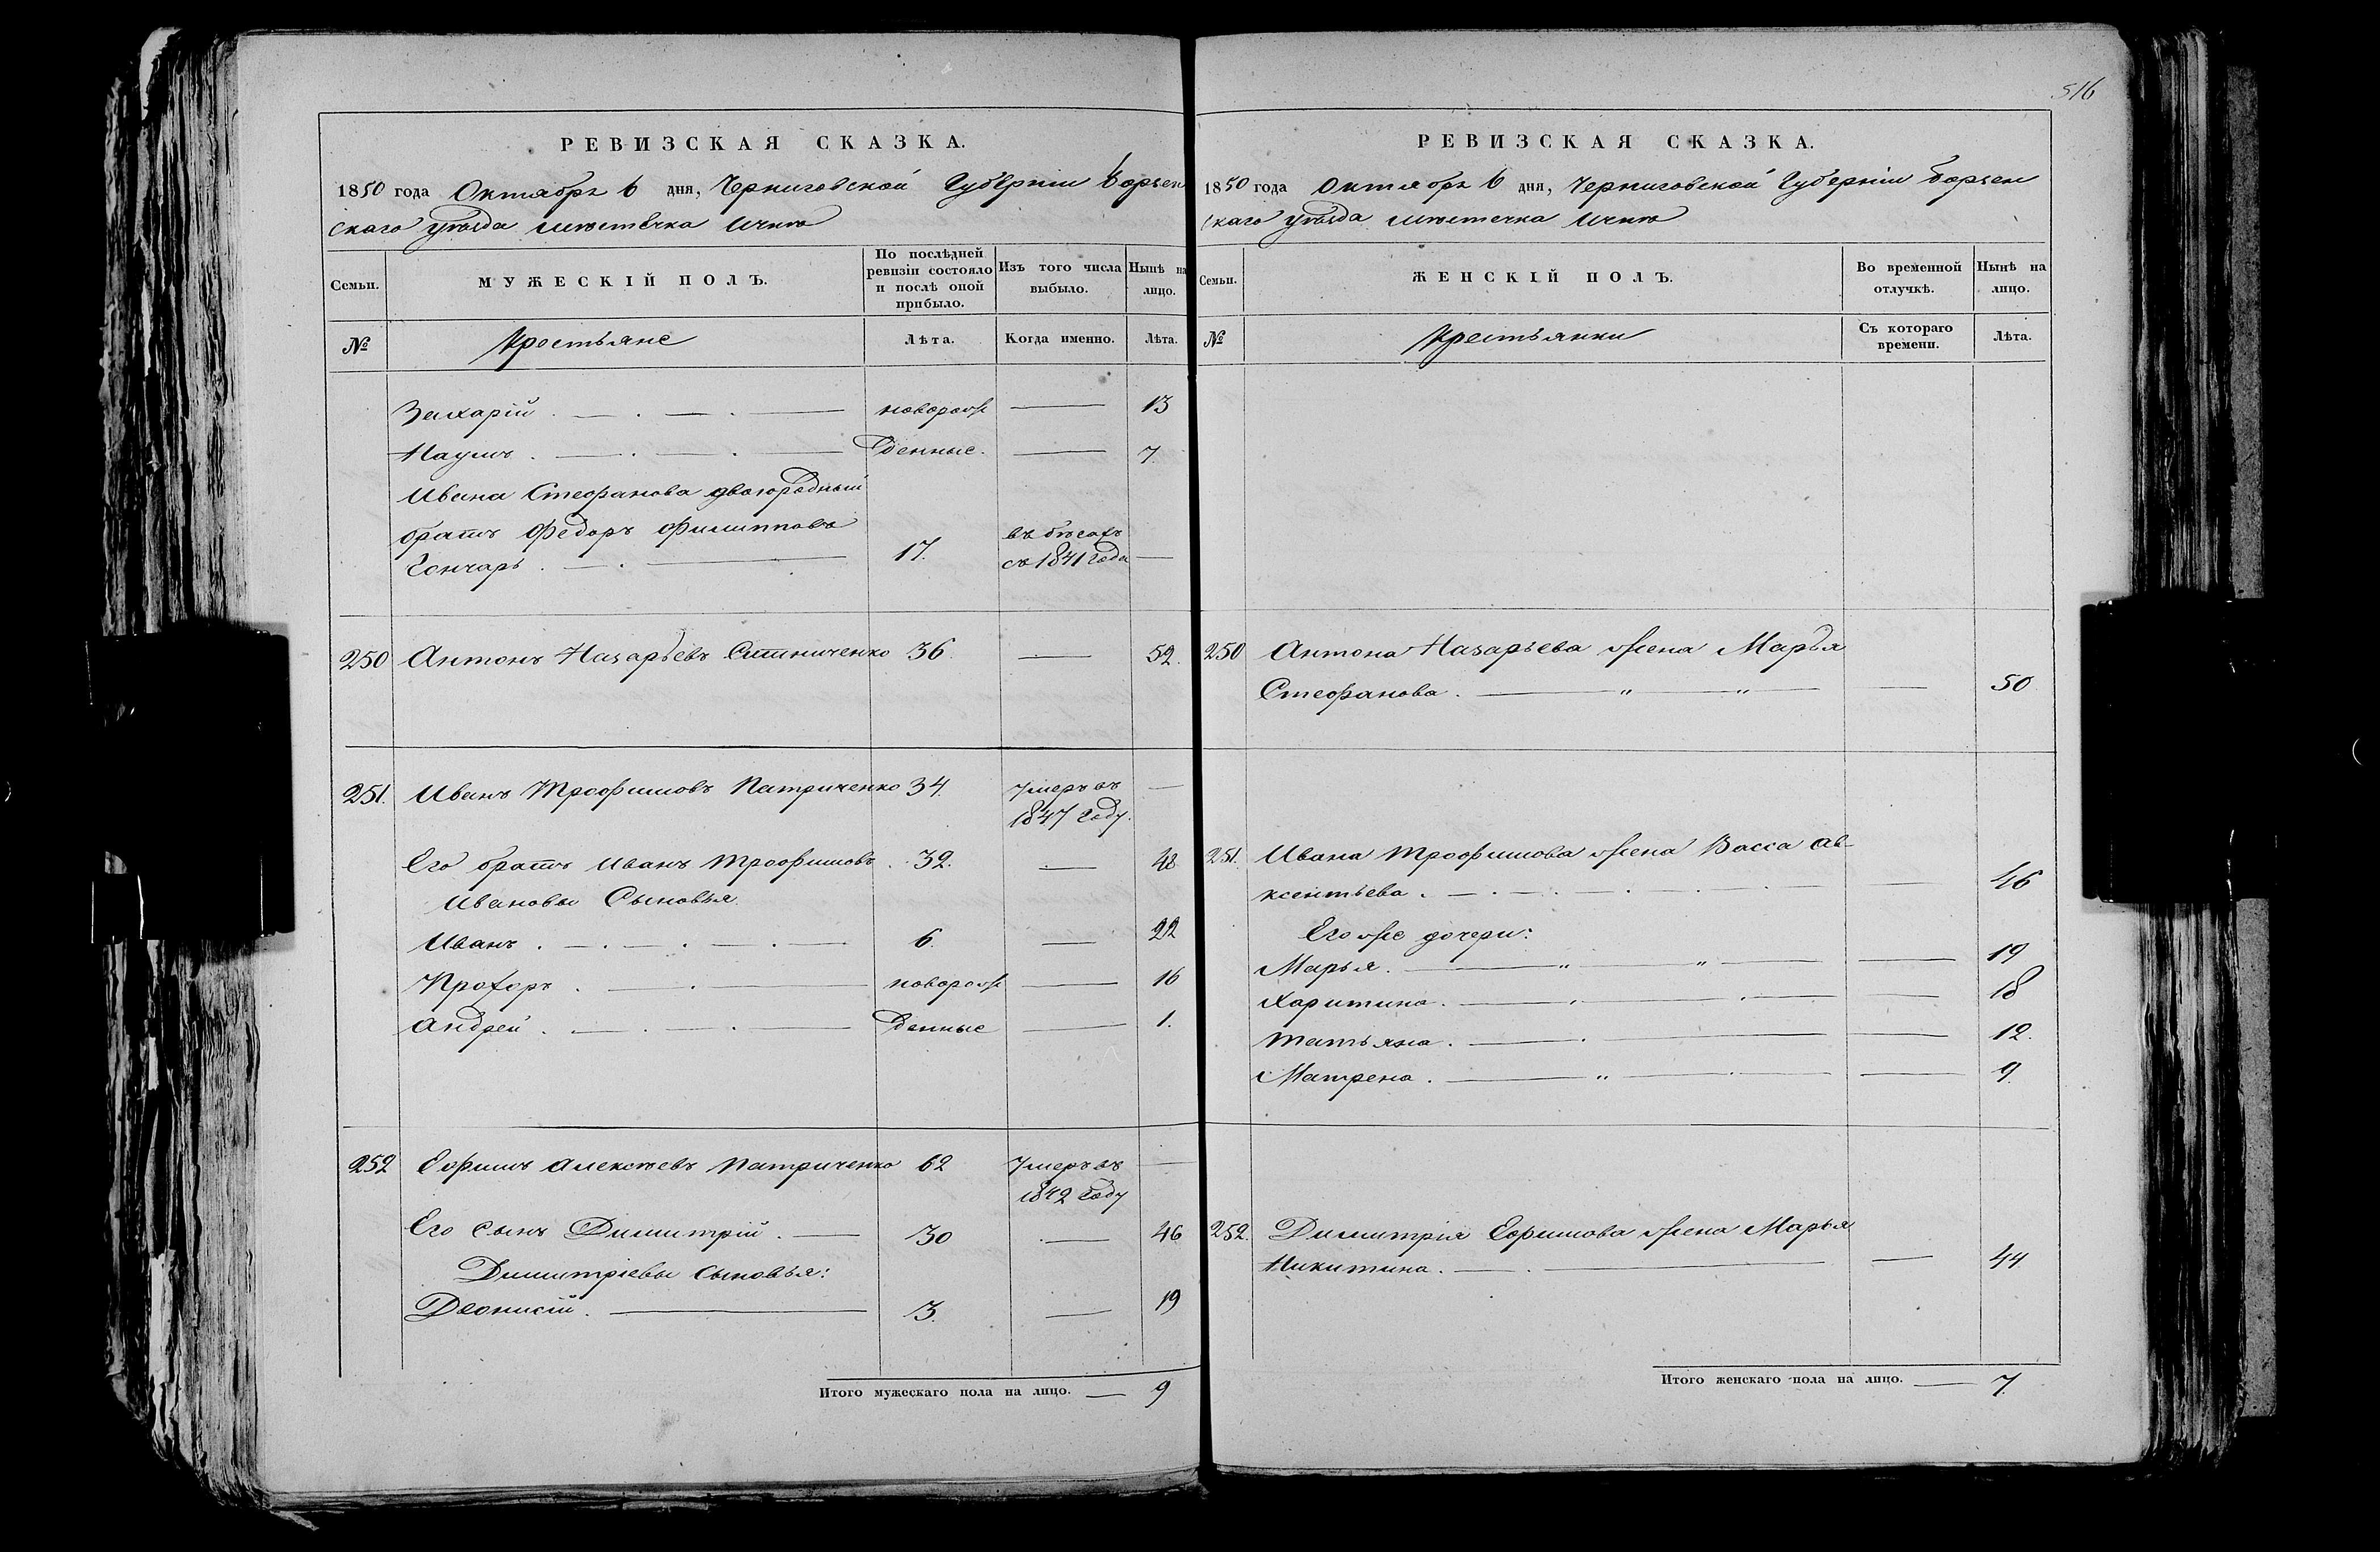 РЕВИЗСКАЯ СКАЗКА.
1850 года Октября 6 дня, Черниговской Губерніи Борзен
скаго уѣзда мѣстечка Ични
Семьи.
МУЖЕСКІЙ ПОЛЪ.
По послѣдней ревизіи состояло и послѣ оной прибыло.
Изъ того числа выбыло.
Нынѣ на лицо.
№
Крестьяне
Лѣта.
Когда именно.
Лѣта.
Захарій новорож 13
Наумъ денные. 7
Ивана Стефанова двоюродный
братъ Федоръ Филиповъ
Гончарь 17. въ бѣгахъ съ 1841 года
250 Антонъ Назарьевъ 36 52.
251. Иванъ Трофимовъ Патриченко 34. умеръ въ 1847 году.
Его братъ Иванъ Трофимовъ 32. 48
Ивановы Сыновья
Иванъ 6 22
Прохоръ новорож 16
Андрей денные 1.
252 Ефимъ Алексѣевъ Патриченко 62 умеръ въ 1842 году
Его сынъ Димитрій 30 46
Димитріевы сыновья:
Деонисій 3. 19
Итого мужескаго пола на лицо. 9
516
РЕВИЗСКАЯ СКАЗКА.
1850 года Октября 6 дня, Черниговской Губерніи Борзен
скаго уѣзда мѣстечка Ични
Семьи.
ЖЕНСКІЙ ПОЛЪ.
Во временной отлучкѣ.
Нынѣ на лицо.
№
Крестьянки
Съ котораго времени.
Лѣта.
250 Антона Назарьева жена Марья
Стефанова 50
251. Ивана Трофимова жена Васса Ав-
ксентьева 46
Его же дочери:
Марья 19
Харитина 18
Татьяна 12.
Матрена 9.
252. Димитрія Ефимова жена Марья
Никитина 44
Итого женскаго пола на лицо. 7.